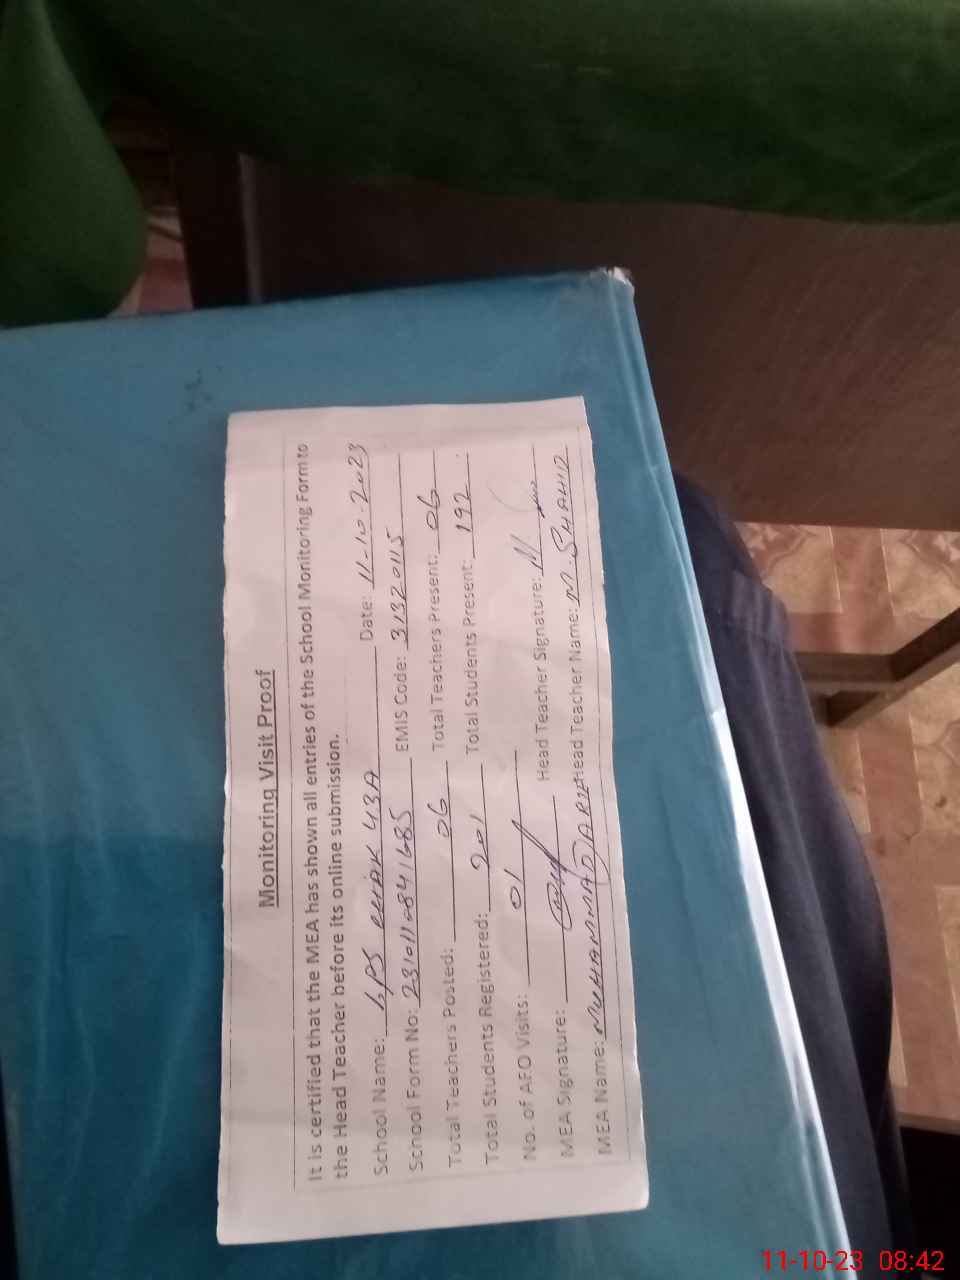 Monitoring Visit Proof
It is certified that the MEA has shown all entries of the School Monitoring Form to
the Head Teacher before its online submission.
School Name: GPS CHAK 43A Date: 11-10-2023
School Form No: 231011084 1685 EMIS Code: 31320115
Total Teachers Posted: 06 Total Teachers Present: 06
Total Students Registered: 201 Total Students Present: 192
No. of AFO Visits: 01
MEA Signature: Head Teacher Signature:
MEA Name: MUHAMMAD Head Teacher Name: M. SHAHID
11-10-23 08:42